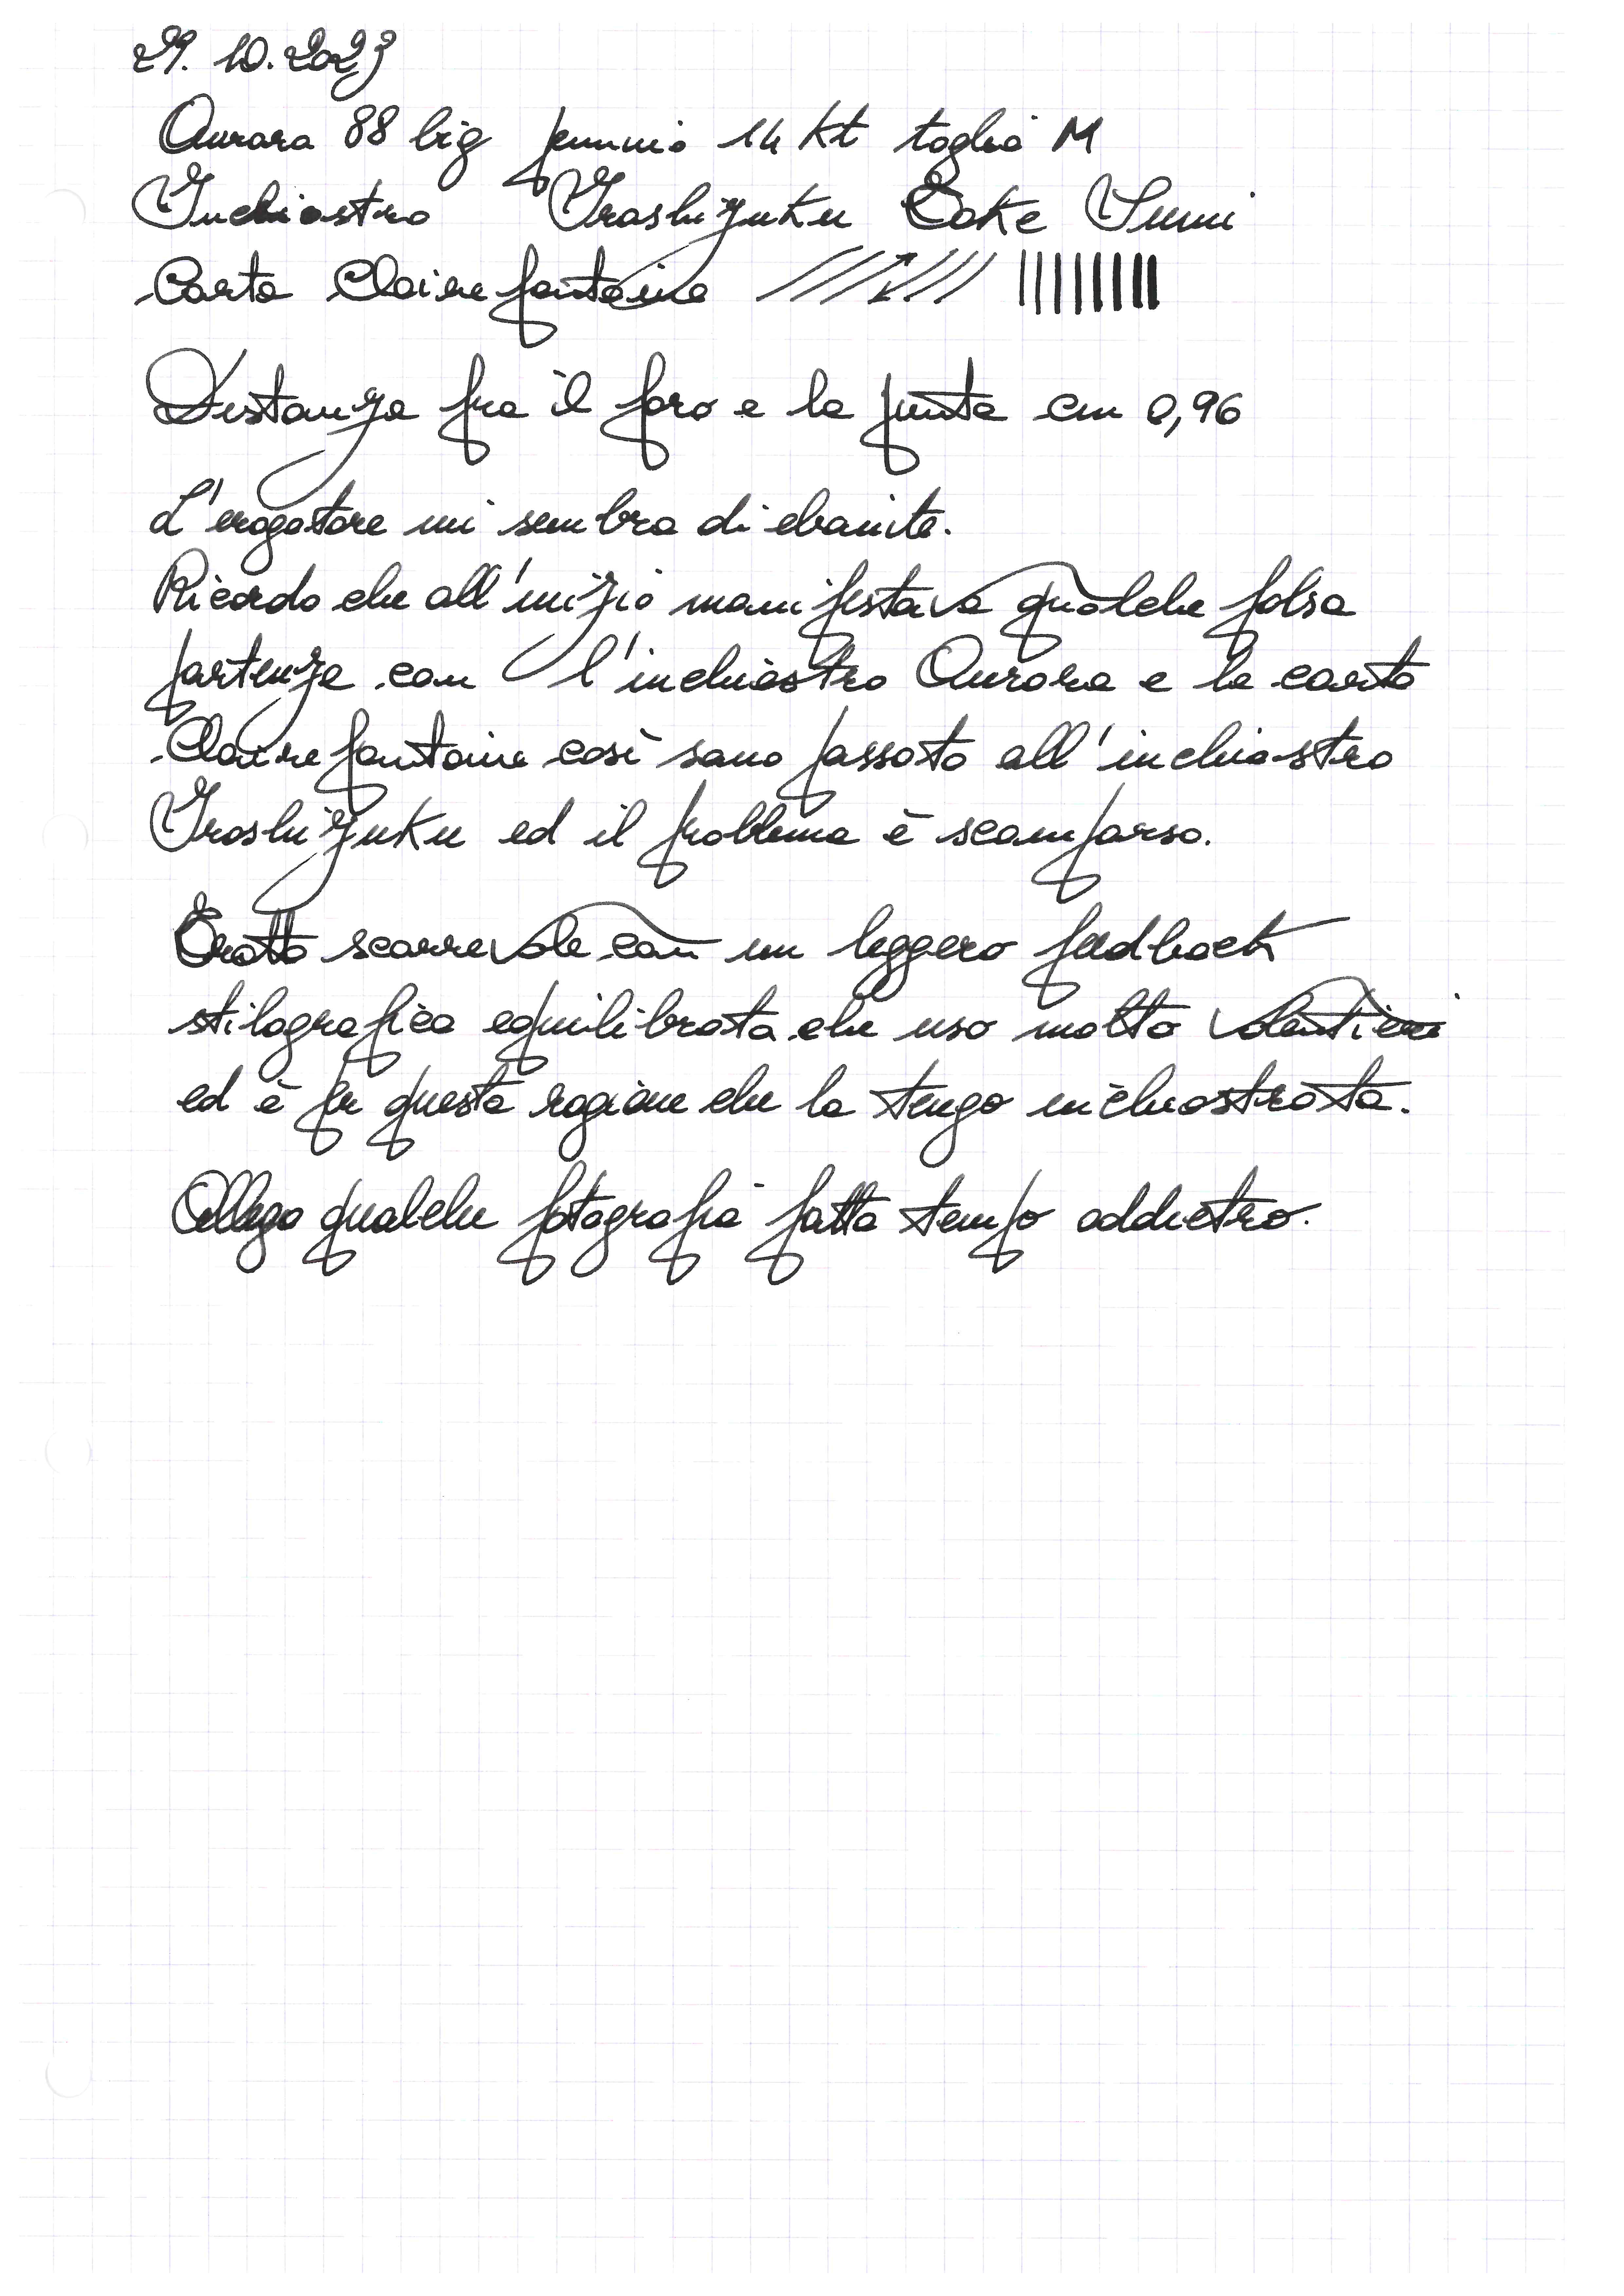 29.10.2023
Aurora 88 big pennino 14 Kt taglia M
Inchiostro Iroshizuku Take Sumi
Carta Clairefontaine
Distanza fra il foro e la punta cm 0,96
L'erogatore mi sembra di ebanite.
Ricordo che all'inizio manifestava qualche falsa
partenza con l'inchiostro Aurora e la carta
Clairefontaine così sono passato all'inchiostro
Iroshizuku ed il problema è scomparso.
Tratto scorrevole con un leggero feedback
stilografica equilibrata che uso molto volentieri
ed è per questa ragione che la tengo inchiostrata.
Allego qualche fotografia fatta tempo addietro.